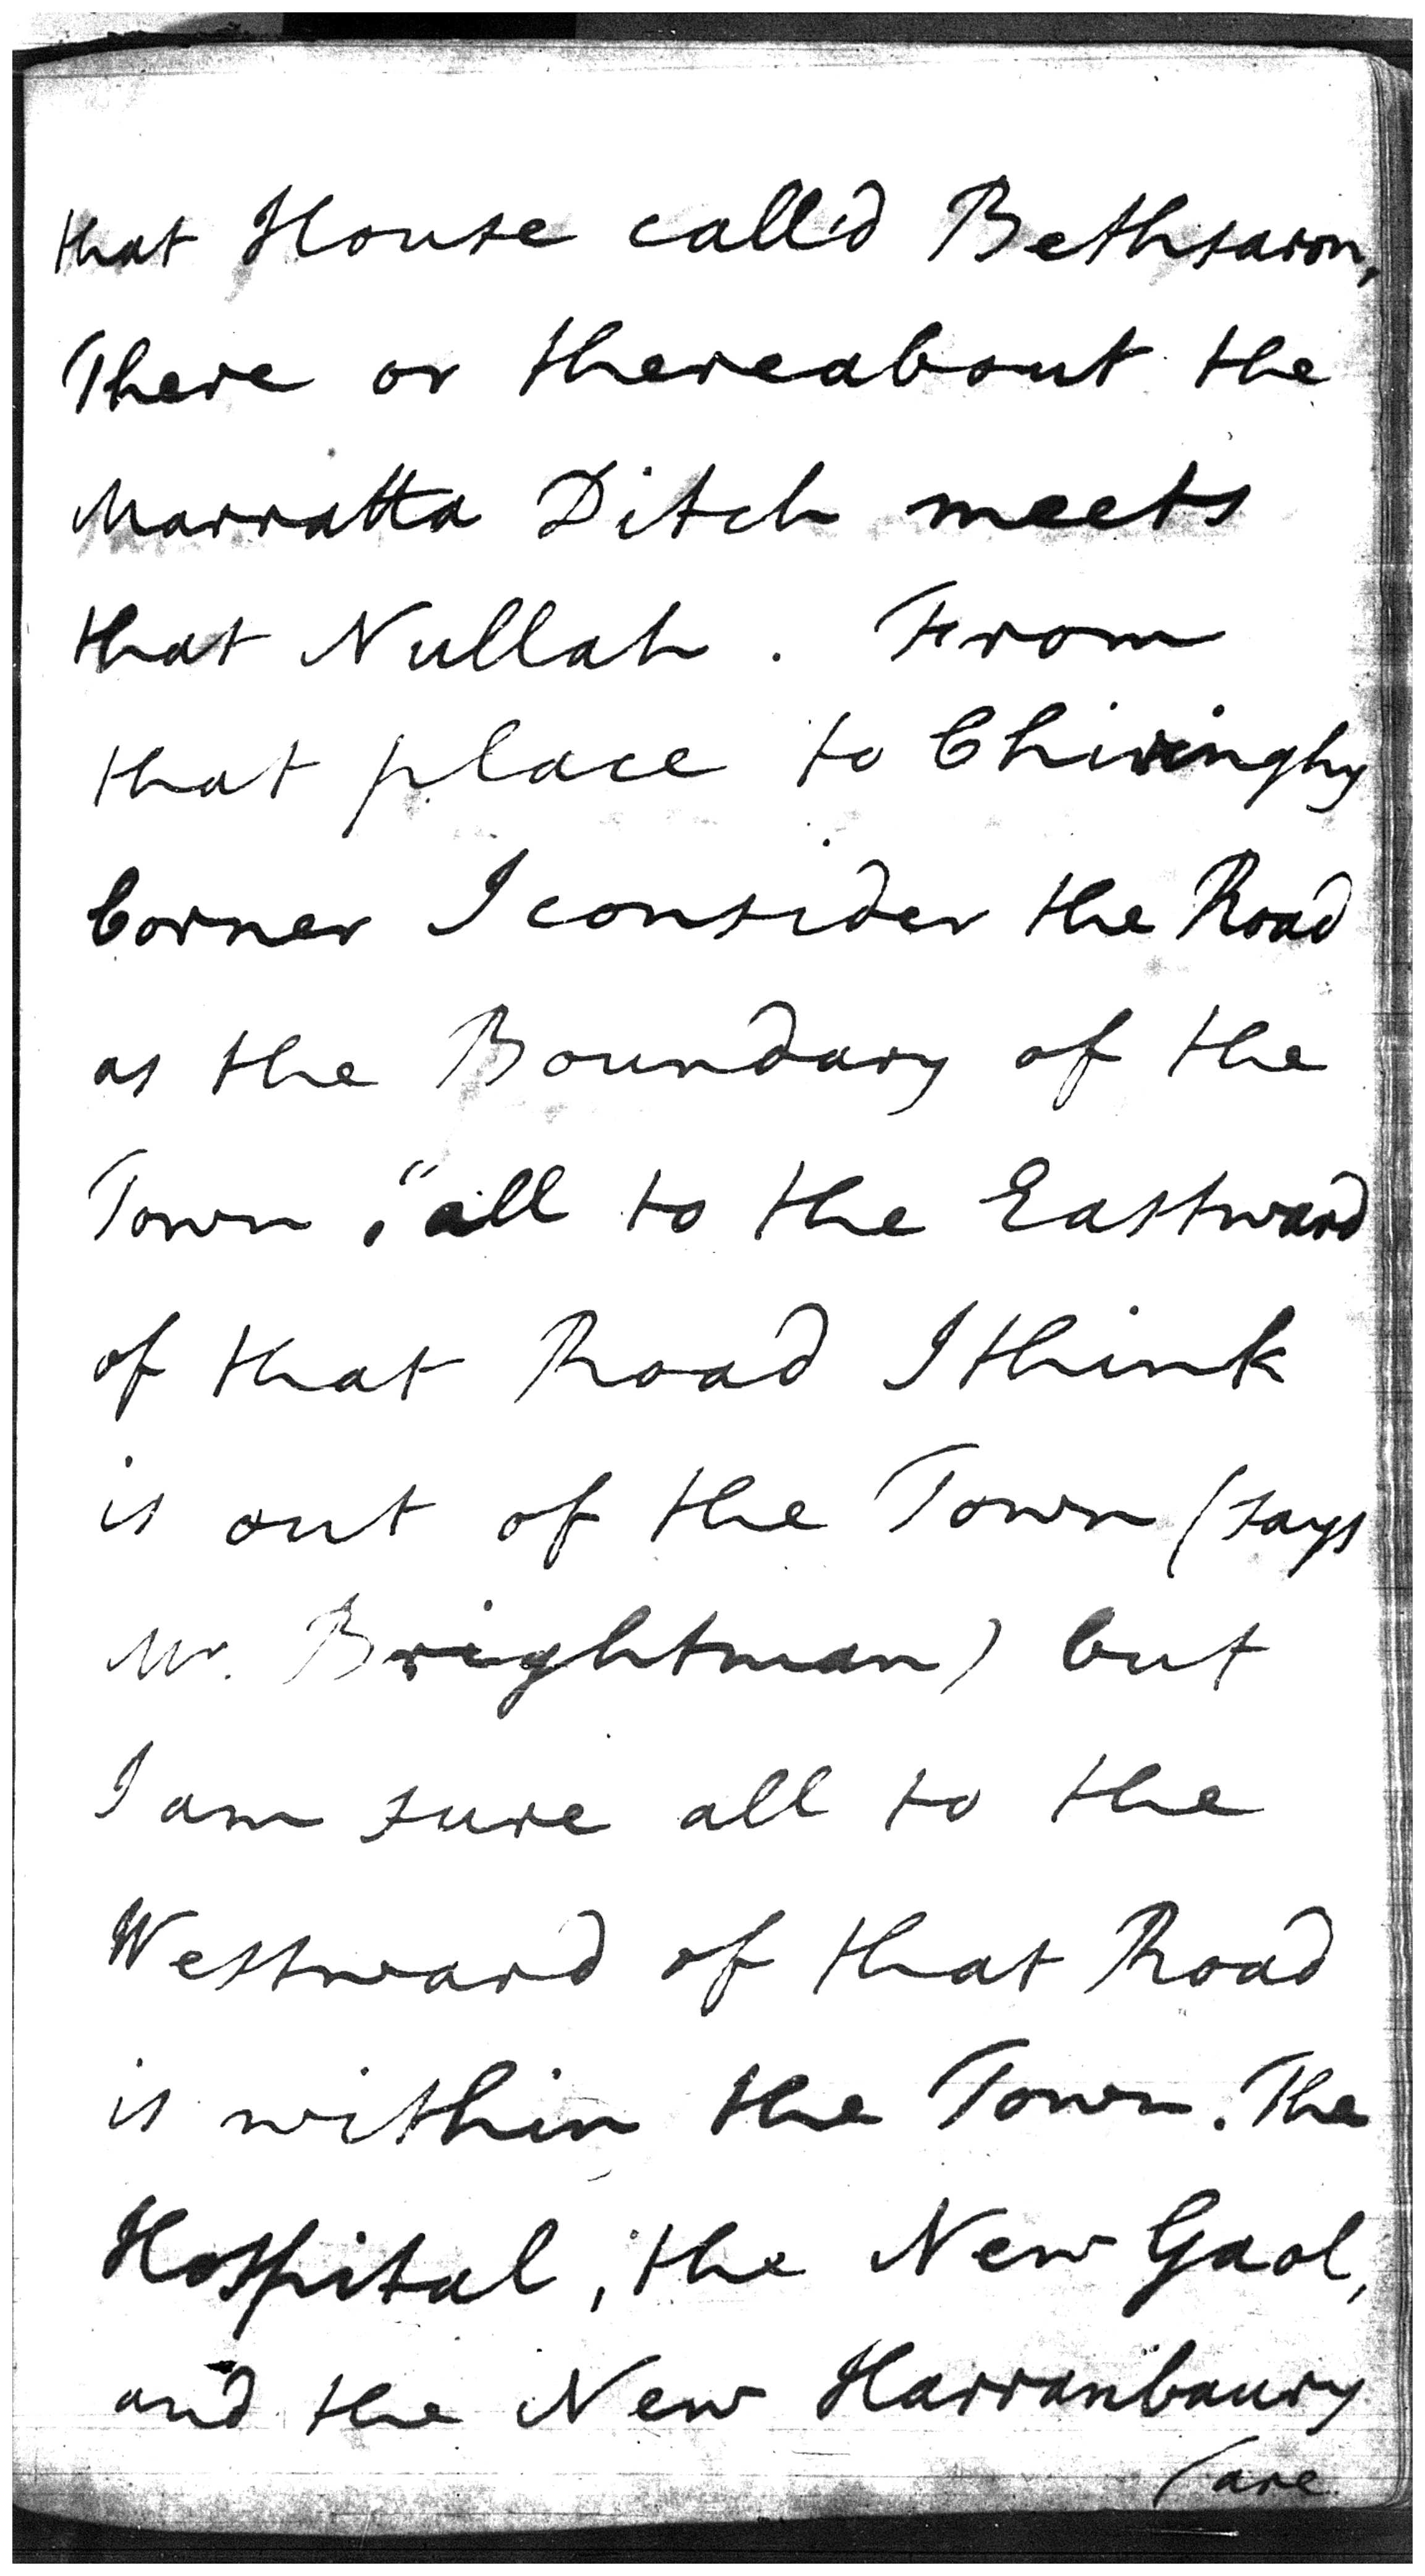 that House call'd Bethsaron,
There or thereabout the
Marratta Ditch meets
that Nullah. From
that place to Chiringhy
Corner I consider the Road
as the Boundary of the
Town, "all to the Eastward
of that Road I think
is out of the Town (says
Mr. Brightman) but
I am sure all to the
Westward of that Road
is within the Town. The
Hospital, the New Gaol,
and the New Harranbaury
(are